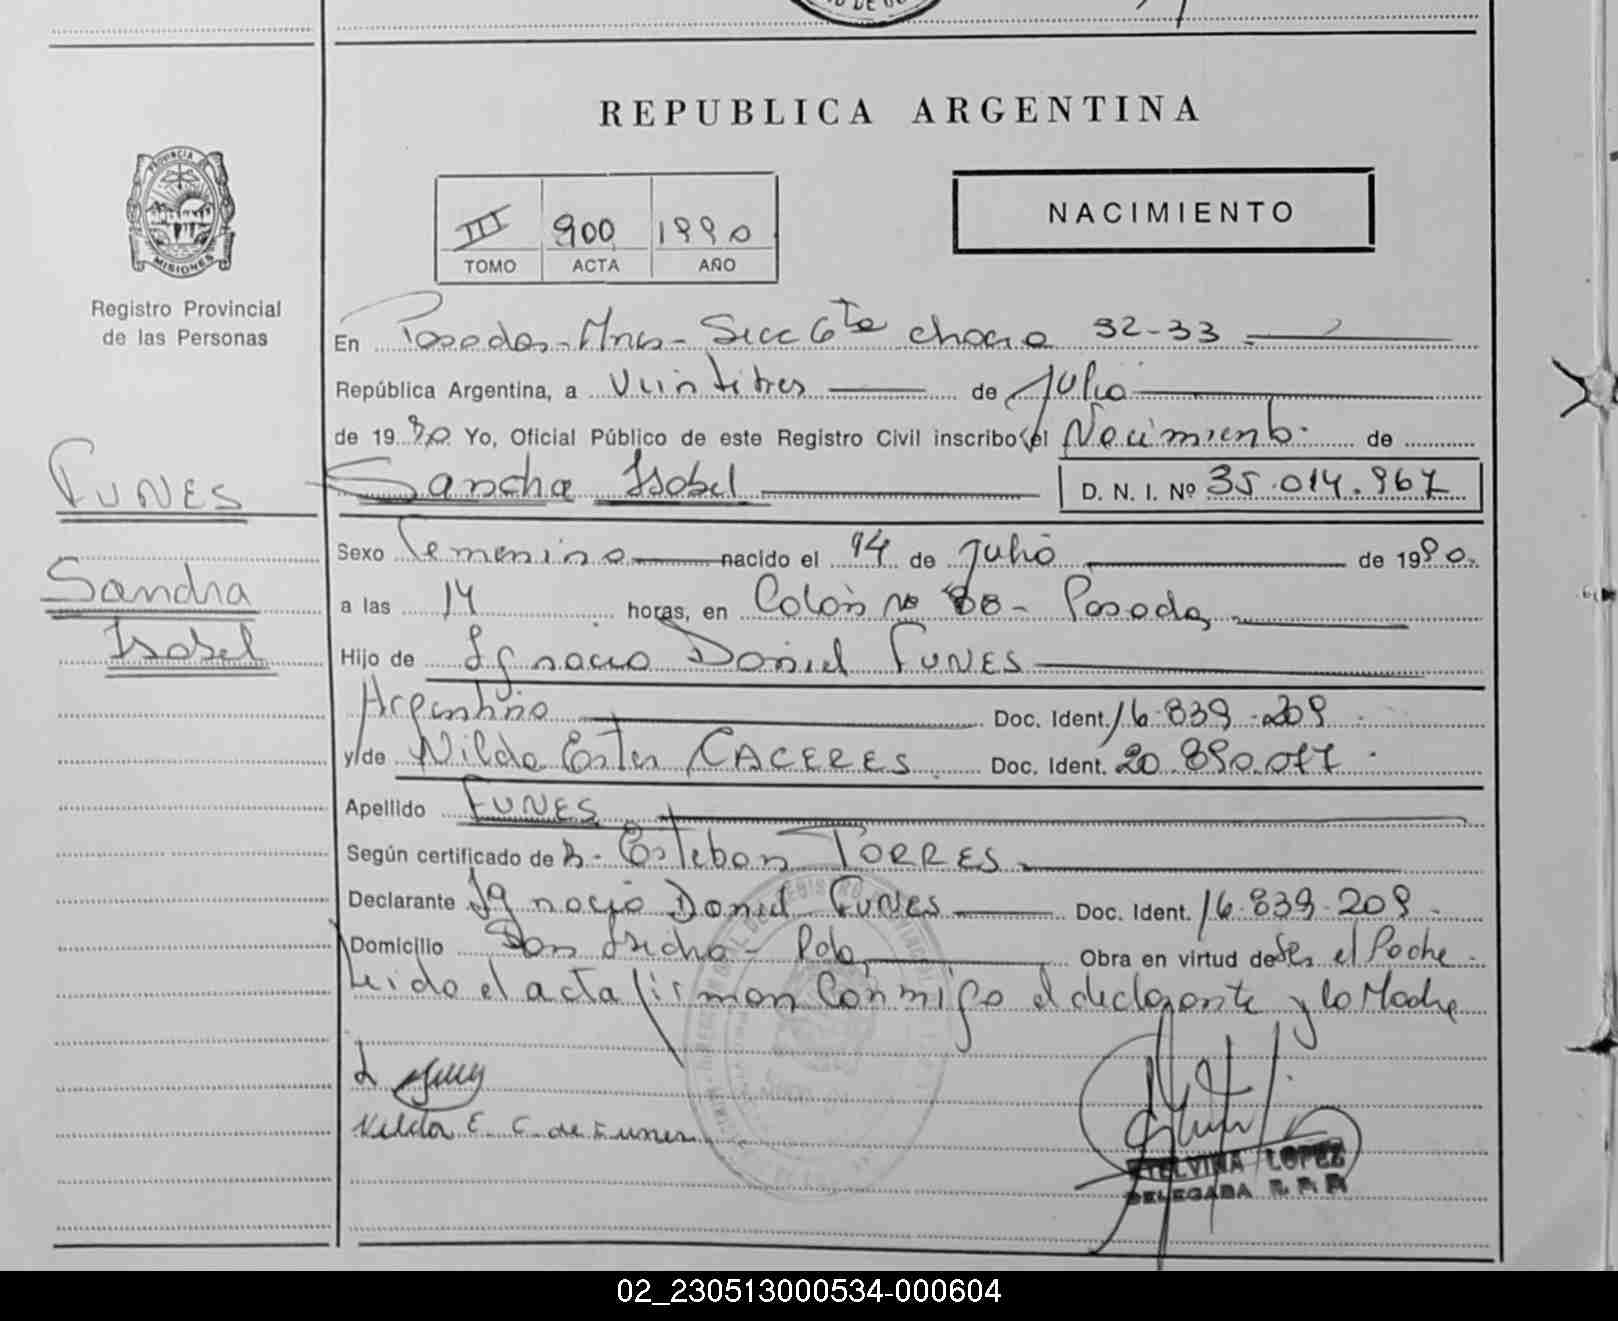 REPUBLICA ARGENTINA
PROVINCIA DE
MISIONES
Registro Provincial
de las Personas
NACIMIENTO
III 900 1990
TOMO ACTA AÑO
En Posadas - Mnes - Secc 6ta chacra 32-33
República Argentina, a Veintitres de Julio
de 1990. Yo, Oficial Público de este Registro Civil inscribo el Nacimiento de
Sandra Isabel D. N. I. Nº 35.014.967
FUNES
Sandra
Isabel
Sexo Femenino nacido el 14 de Julio de 1990.
a las 14 horas, en Colón no - Posadas
Hijo de Ignacio Daniel FUNES
Argentino Doc. Ident. 16.839.209
y de Nilda Ester CACERES Doc. Ident. 20.890.077
Apellido FUNES
Según certificado de Esteban TORRES
Declarante Ignacio Daniel Funes Doc. Ident. 16.839.209
Domicilio Pda Obra en virtud de Ser el Padre
Leido el acta firman conmigo el declarante y la Madre
Nilda E. C. de Funes
ETELVINA LOPEZ
DELEGADA R. P. P.
02_230513000534-000604